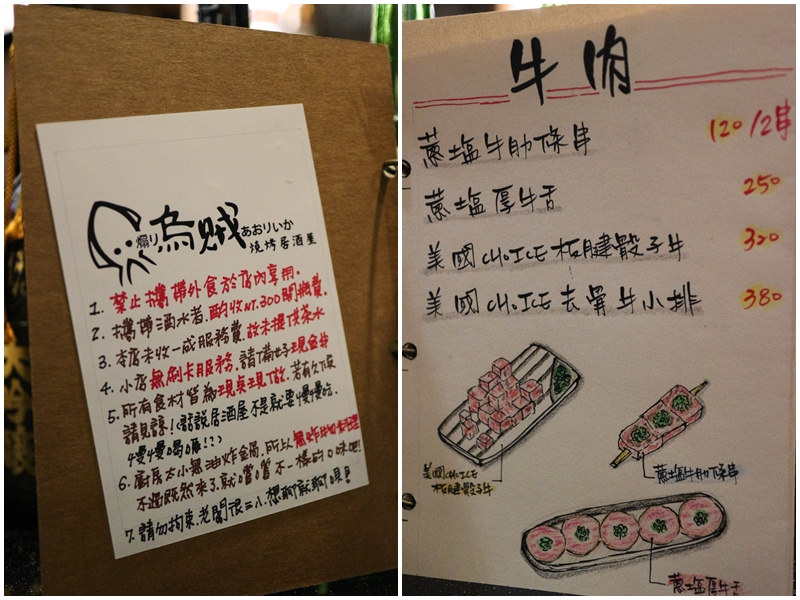 煽り烏賊あおりいか
燒烤居酒屋
1. 禁止攜帶外食於店內享用.
2. 攜帶酒水者.酌收NT.300開瓶費.
3. 本店未收一成服務費.故未提供茶水
4. 小店無刷卡服務.請備好現金!!
5. 所有食材皆為現桌現做.若有久候
請見諒!(話說居酒屋不是就要慢慢吃.
慢慢喝嘛!?)
6. 廚房太小無油炸金局.所以無炸物料理
不過既然來了.就嚐嚐不一樣的口味吧!
7. 請勿拘束.老闆很三八.想聊就聊唄!!
牛肉
蔥塩牛肋條串 120/2串
蔥塩厚牛舌 250
美國CHOICE板腱骰子牛 320
美國CHOICE去骨牛小排 380
美國CHOICE
板腱骰子牛
蔥塩牛肋條串
蔥塩厚牛舌